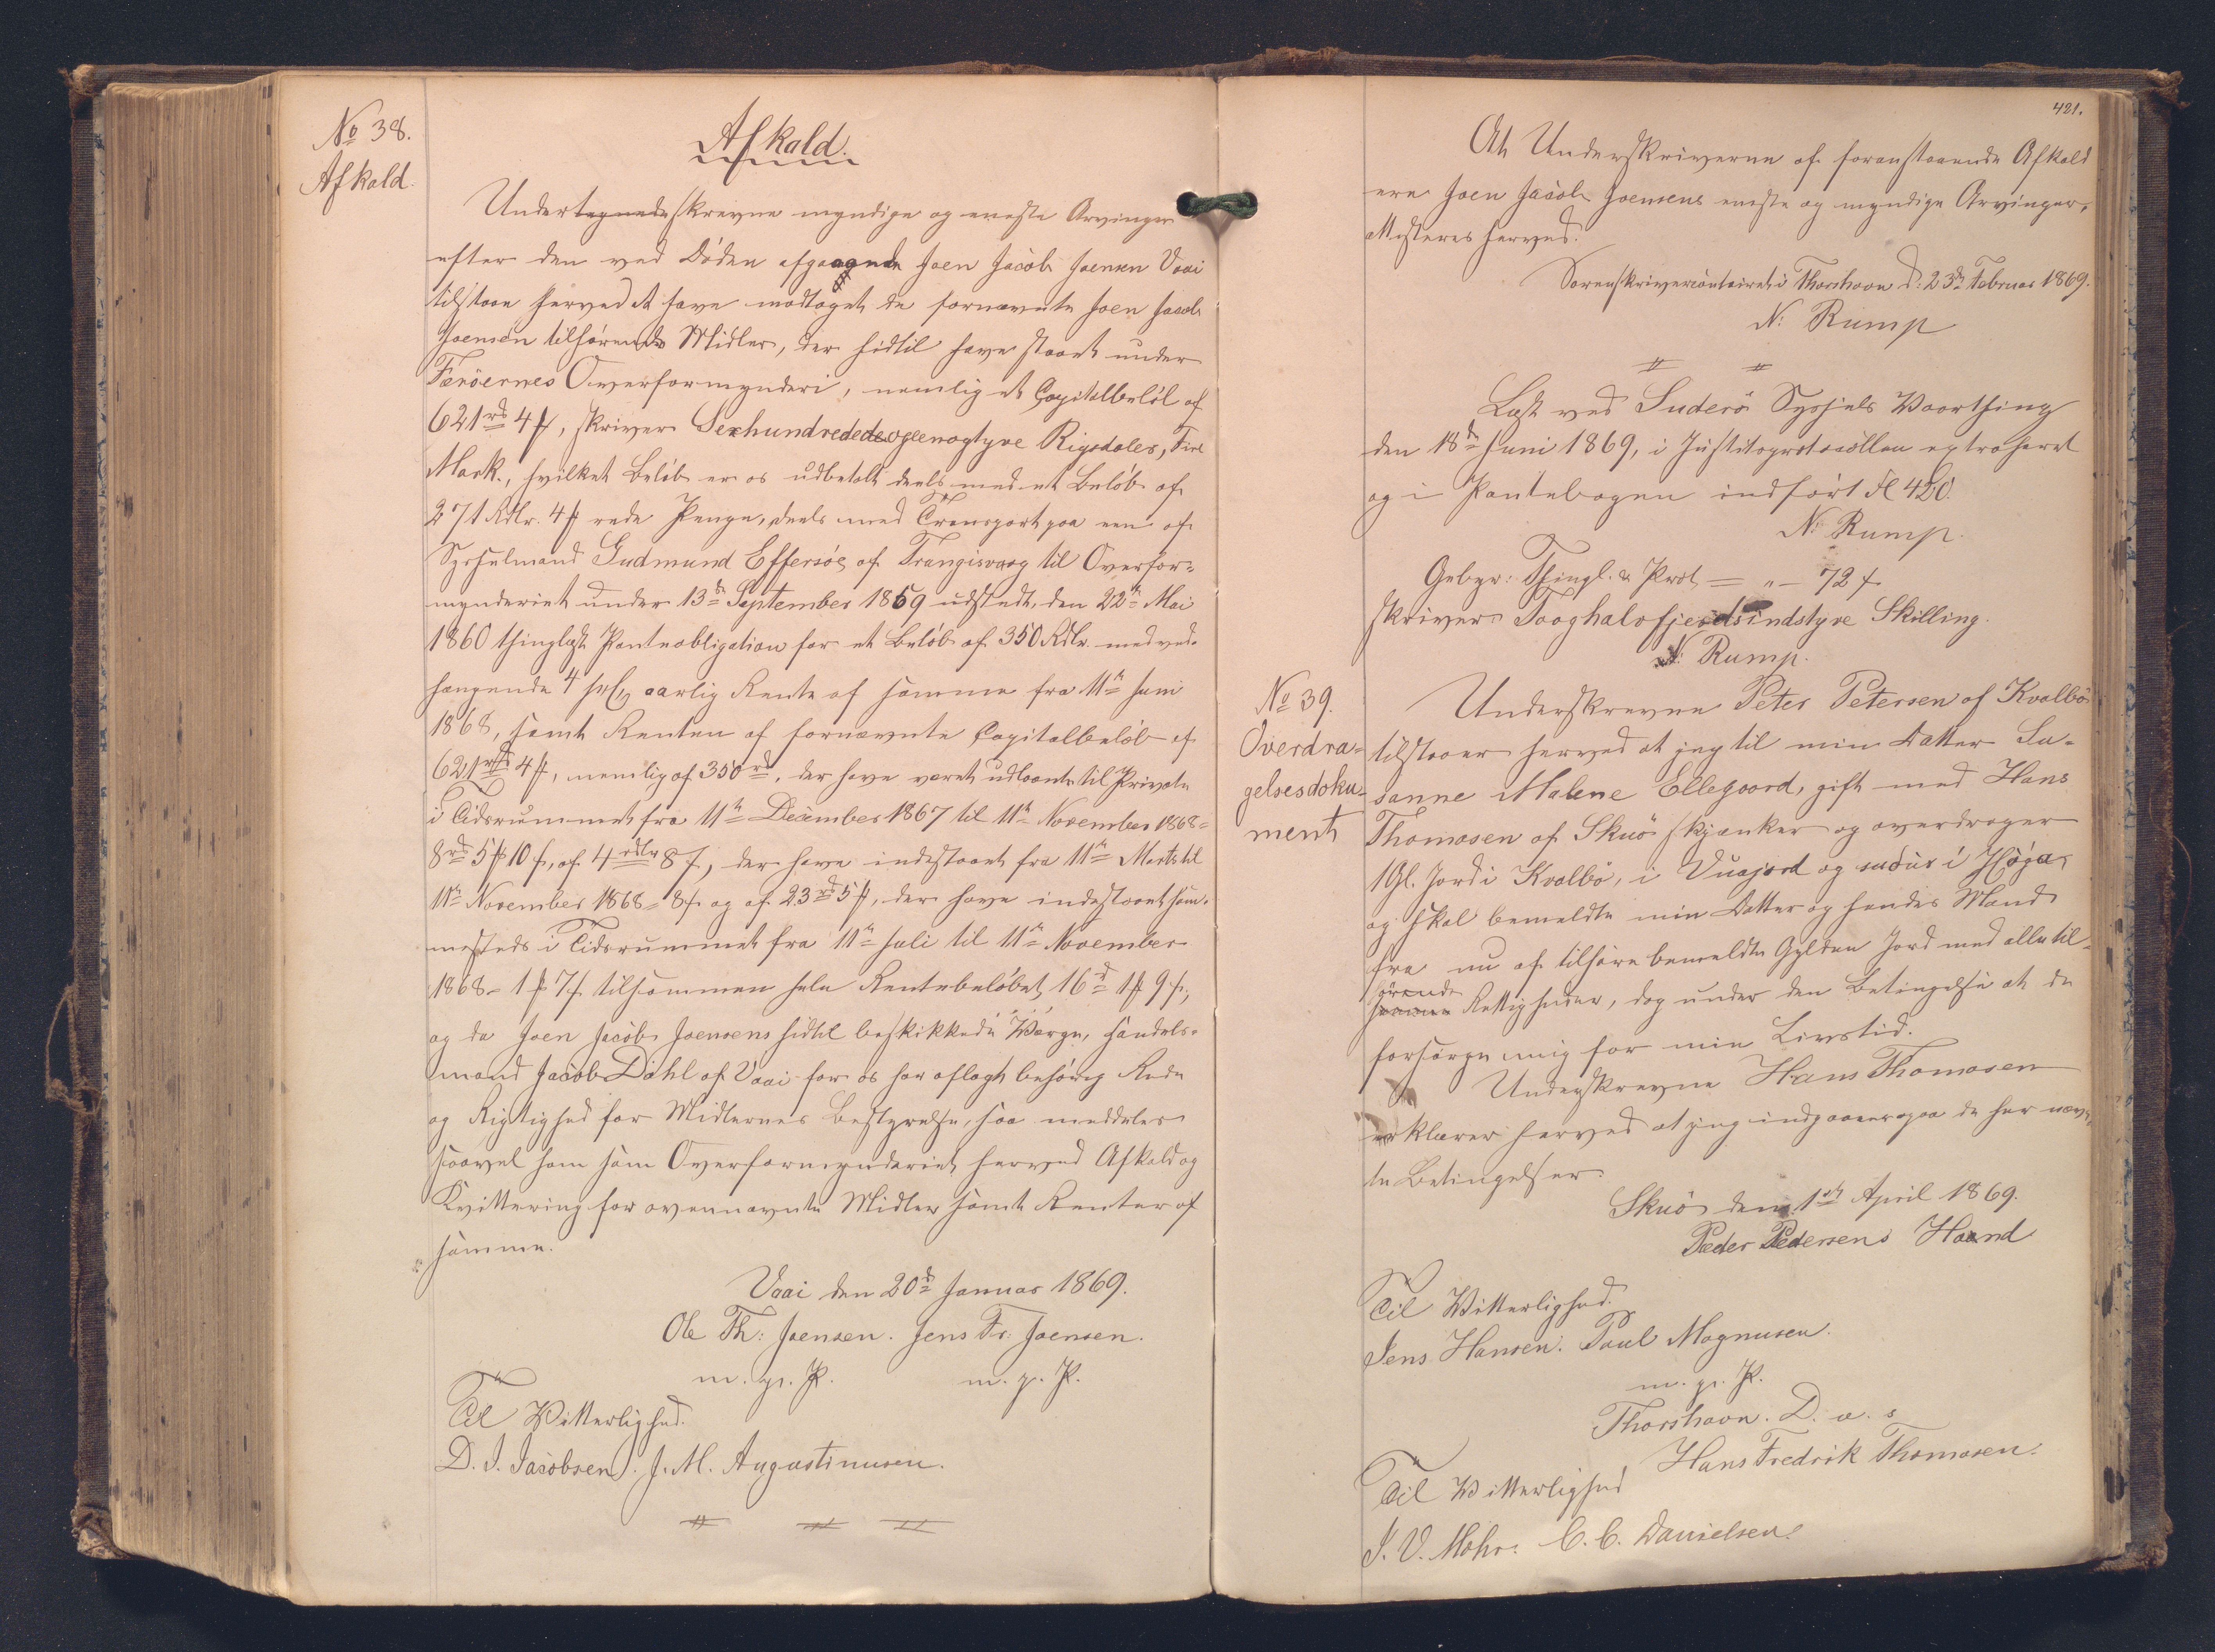 No 38.
Afkald.
Afkald.
Undertegnedeskrevne myndige og eneste Arvinger
efter den ved Døden afgaagnede Joen Jacob Joensen Vaai
tilstaae herved at have modtaget de fornævnte Joen Jacob
Joensen tilhørende Midler, der hidtil have staaet under
Færöernes Overformynderi, nemlig et Capitalbeløb af
621rd 4 ℔, skriver Sexhundrededeogeenogtyve Rigsdaler, Fire
Mark., hvilket Beløb er os udbetalt deels med et Beløb af
271 Rdlr. 4 ℔ rede Penge, deels med Transport paa een af
Sysselmand Gudmund Effersöe af Trangisvaag til Overfor=
mynderiet under 13de September 1859 udstedt, den 22de Mai
1860 thinglæst Panteobligation for et Beløb af 350 Rdlr. med ved=
hængende 4 prCt aarlig Rente af samme fra 11te Juni
1868, samt Renten af fornævnte Capitalbeløb af
621rd 4 ℔, nemlig af 350rd, der have været udlaante til Private
i Tidsrummet fra 11te December 1867 til 11te November 1868 =
8rd 5 ℔ 10 ß, af 4rdlr 8 ß, der have indestaaet fra 11te Marts til
11te November 1868 = 8 ß og af 23rd 5 ℔, der have indestaaet sam=
mesteds i Tidsrummet fra 11te Juli til 11te November
1868 - 1 ℔ 7 ß tilsammen hele Rentebeløbet 16rd 1 ℔ 9 ß,
og da Joen Jacob Joensens hidtil beskikkede Værge, Handels=
mand Jacob Dahl af Vaai for os har aflagt behørig Rede
og Rigtighed for Midlernes Bestyrelse, saa meddeles
saavel ham som Overformynderiet herved Afkald og
Kvittering for ovennævnte Midler samt Renter af
samme.
Vaai den 20de Januar 1869.
Ole Th: Joensen. Jens Fr: Joensen.
m. p. P. m. p. P.
Til Vitterlighed.
D. J. Jacobsen. J. M. Augustinusen.
421.
At Underskriverne af foranstaaende Afkald
ere Joen Jacob Joensens eneste og myndige Arvinger,
attesteres herved.
Sorenskrivercontoiret i Thorshavn d: 23de Februar 1869.
N: Rump
Læst ved Suderö Syssels Vaarthing
den 18de Juni 1869, i Justitsprotocollen extraheret
og i Pantebogen indført Fl 420.
N: Rump.
Gebyr: Thingl. & Prot = " - 72 ß
skriver Tooghalvfjerdsindstyve Skilling.
N: Rump.
No 39.
Overdra=
gelsesdoku=
ment
Underskrevne Peter Petersen af Kvalbö
tilstaaer herved at jeg til min Datter Su=
sanne Malene Ellegaard, gift med Hans
Thomasen af Skuö skjænker og overdrager
1 Gl. Jord i Kvalbö, i Vuajord og suður i Höga,
og skal bemeldte min Datter og hendes Mand
fra nu af tilhøre bemeldte Gylden Jord med alle til=
hørende
Rettigheder, dog under den Betingelse at de
forsørge mig for min Livstid.
Underskrevne Hans Thomasen
erklærer herved at jeg indgaaer paa de her nævn=
te Betingelser.
Skuö den 1ste April 1869.
Peder Pedersens Haand
Til Vitterlighed.
Jens Hansen. Poul Magnusen.
m. p. P.
Thorshavn. D. u. s
Hans Fredrik Thomasen.
Til Vitterlighed
J. V. Mohr. C. C. Danielsen.